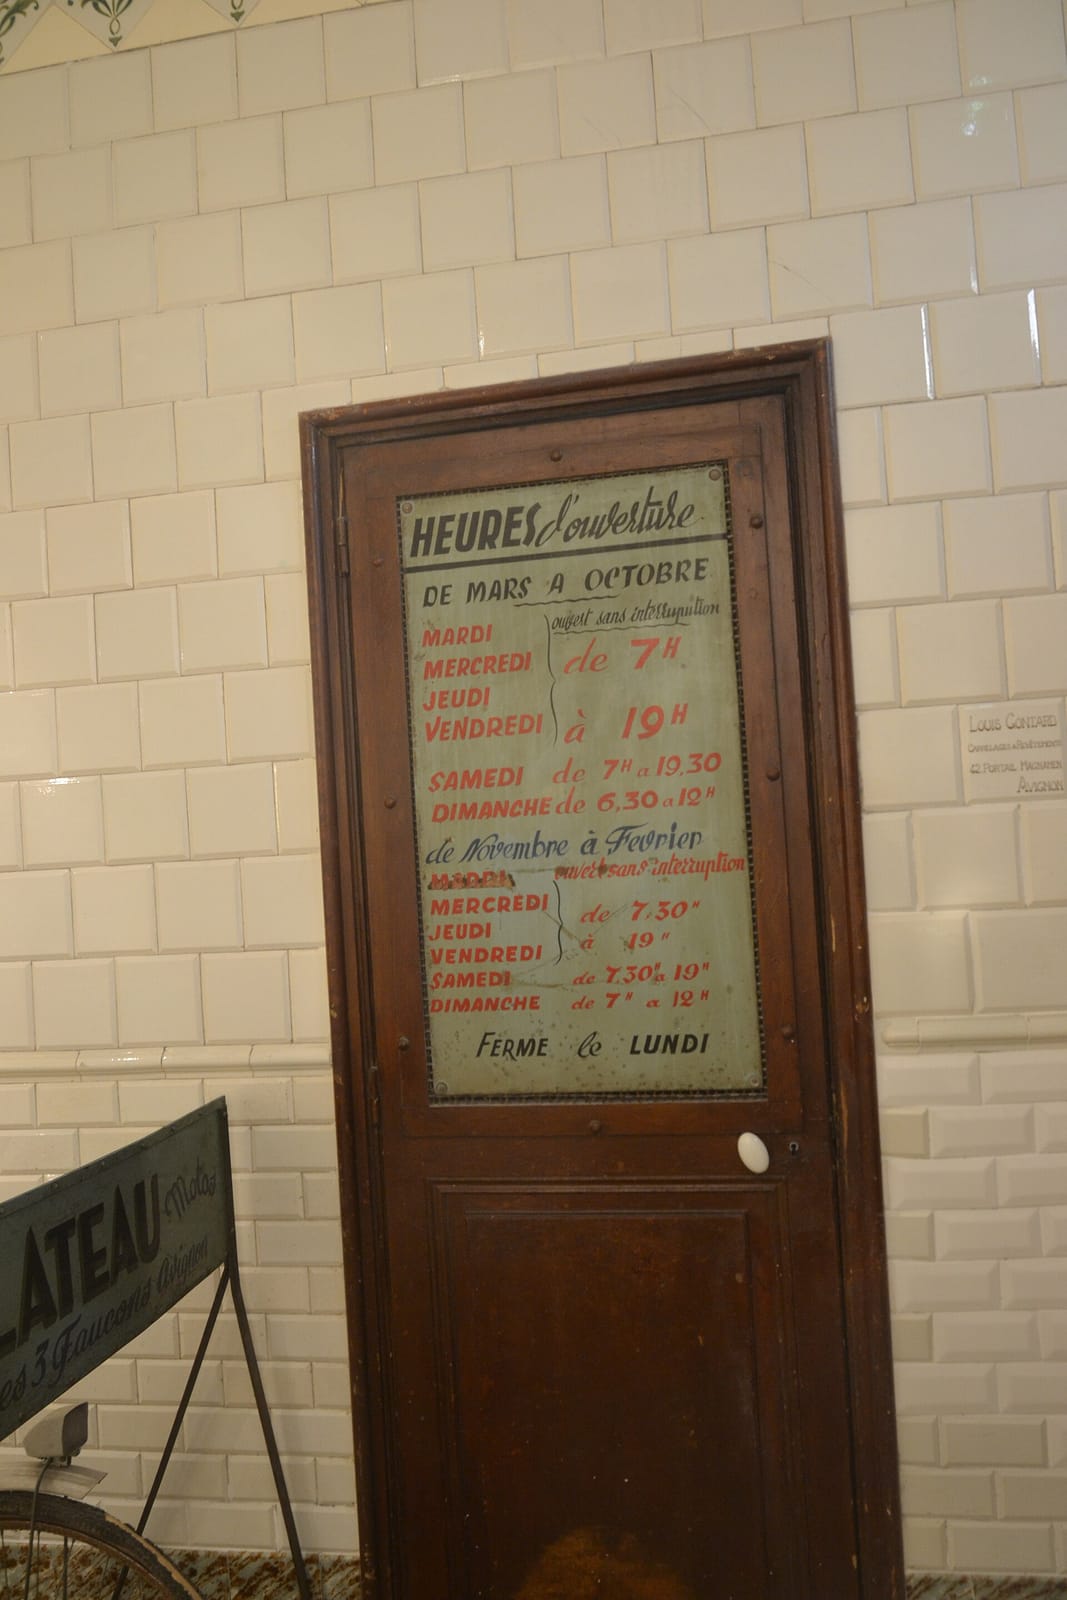 HEURES d'ouverture
DE MARS A OCTOBRE
ouvert sans interrupution
MARDI
MERCREDI de 7H
JEUDI
VENDREDI à 19H
SAMEDI de 7H a 19,30
DIMANCHE de 6,30 a 12H
de Novembre à Fevrier
MARDI ouvert sans interruption
MERCREDI de 7,30"
JEUDI à 19"
VENDREDI
SAMEDI de 7,30" a 19"
DIMANCHE de 7" a 12H
FERME le LUNDI
LOUIS GONTARD
CARRELAGES & REVÊTEMENTS
42 PORTAIL MAGNANEN
AVIGNON
LATEAU Motos
es 3 Faucons Avignon